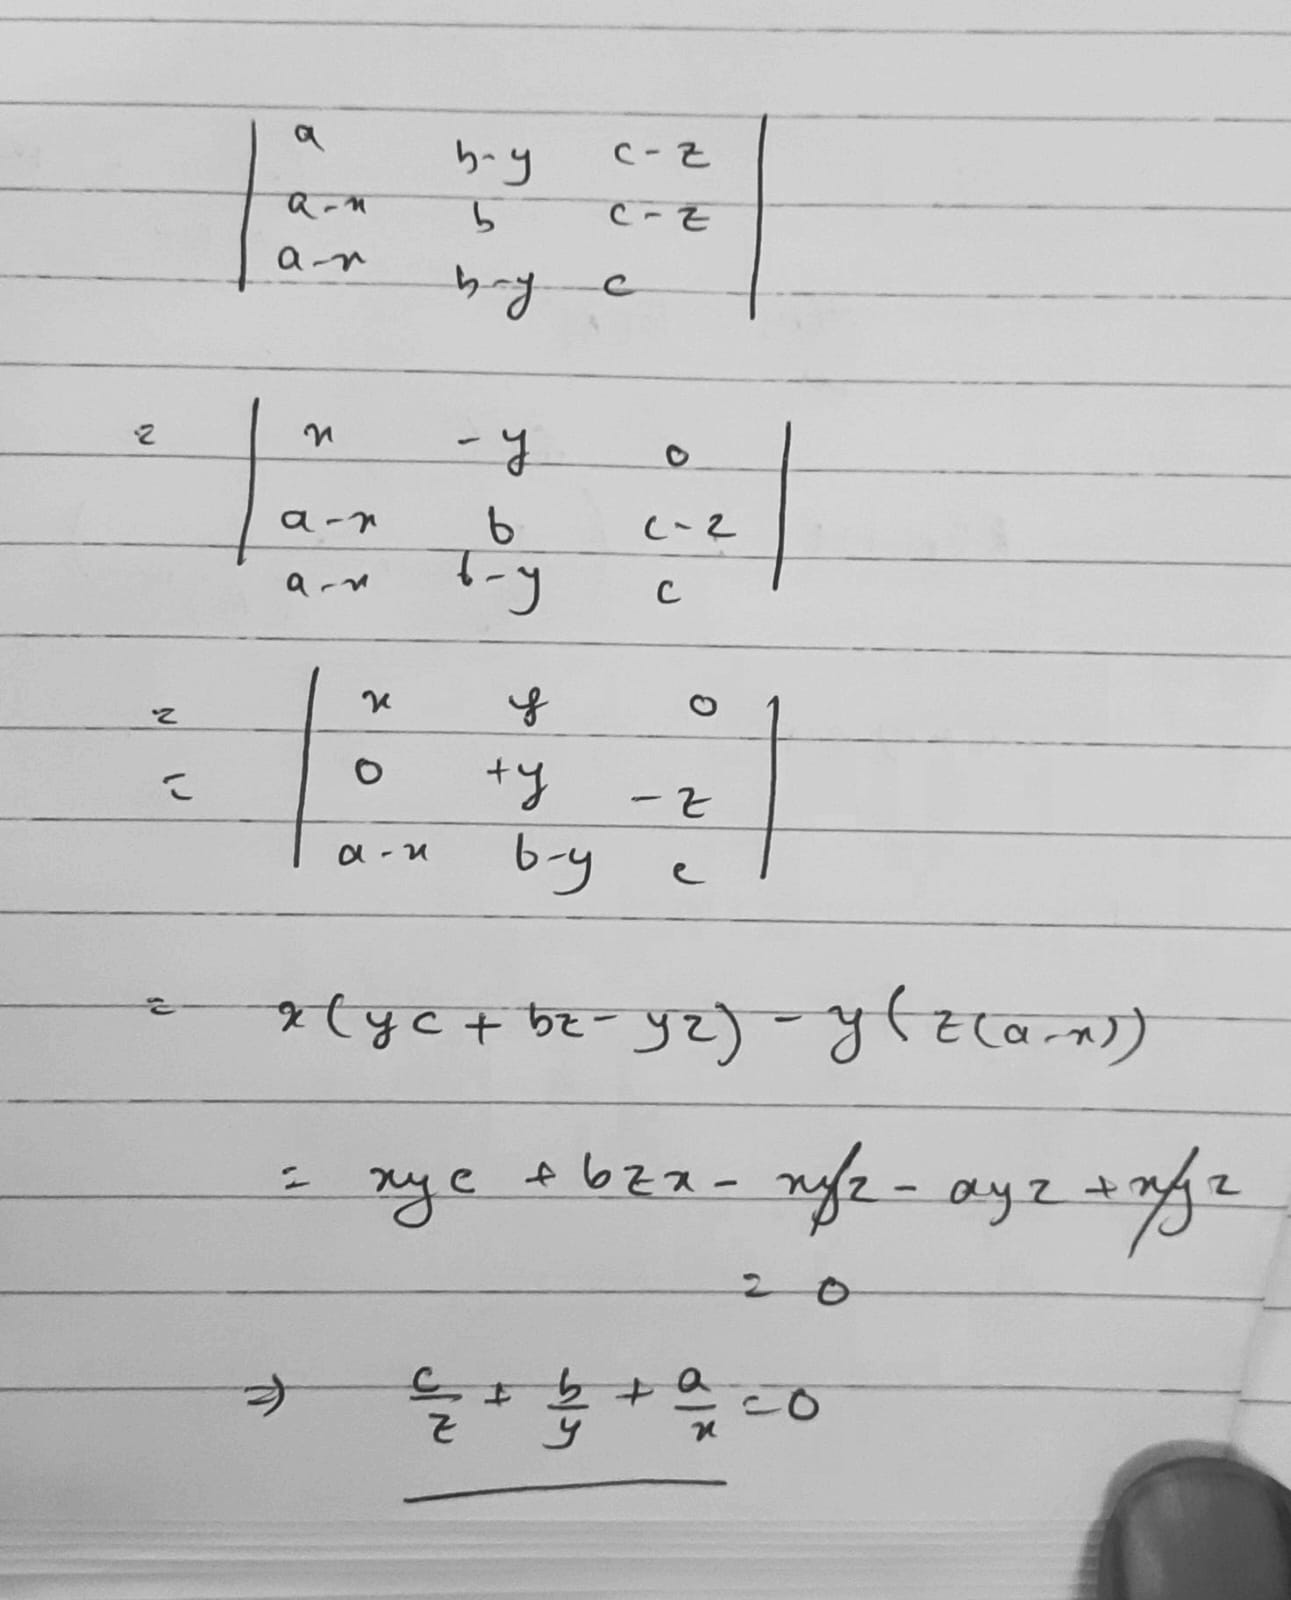 | a b-y c-z |
| a-x b c-z |
| a-x b-y c |
= | x -y 0 |
| a-x b c-z |
| a-x b-y c |
= | x y 0 |
= | 0 +y -z |
| a-x b-y c |
= x(yc + bz - yz) - y(z(a-x))
= xyc + bzx - xyz - ayz + xyz
= 0
⇒ c/z + b/y + a/x = 0